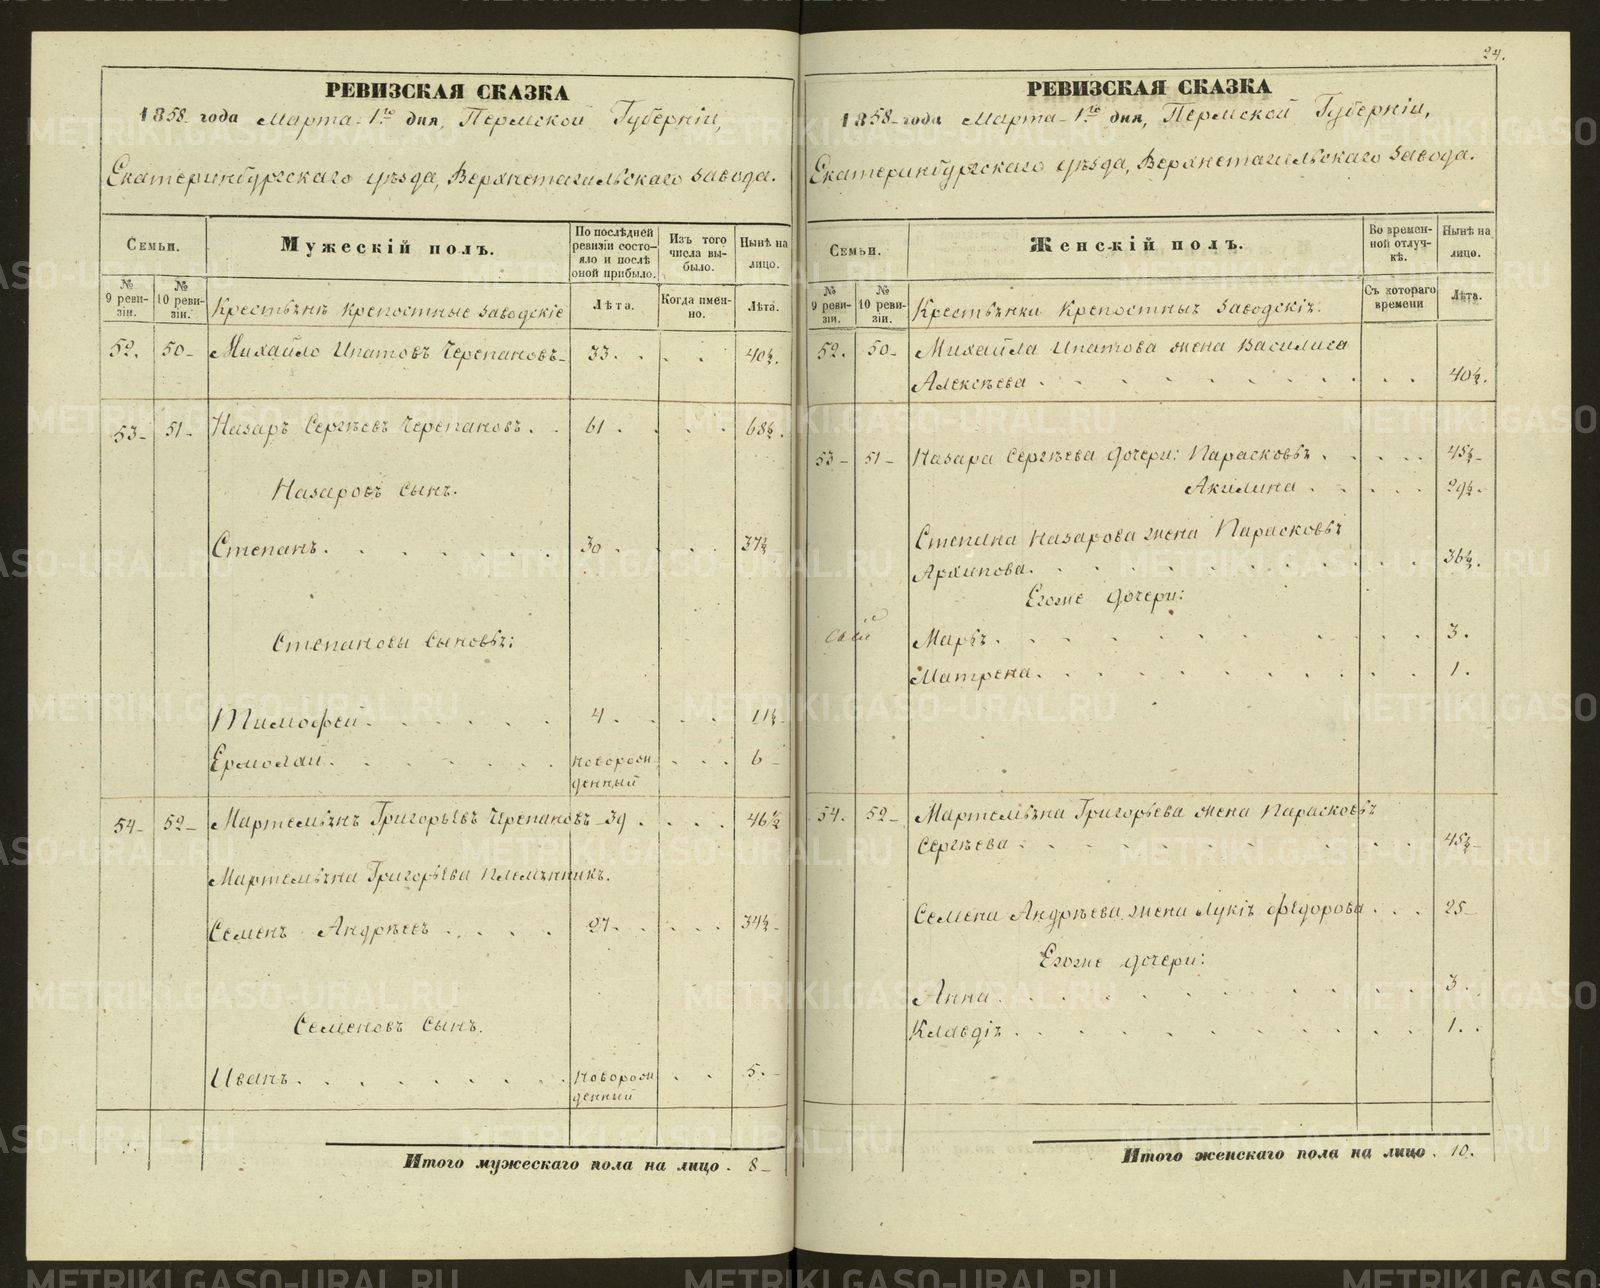 РЕВИЗСКАЯ СКАЗКА
1858 года Марта 1го дня, Пермской Губерніи,
Екатеринбургскаго уѣзда, Верхнетагильскаго завода.
Семьи.
Мужескій полъ.
По послѣдней ревизіи состояло и послѣ оной прибыло.
Изъ того числа выбыло.
Нынѣ на лицо.
№ 9 ревизіи.
№ 10 ревизіи.
Крестьянѣ крепостные заводскіе
Лѣта.
Когда именно.
Лѣта.
52. 50 Михайло Ипатовъ Черепановъ 33. 40½.
53 51 Назаръ Сергѣевъ Черепановъ. 61. 68½.
Назаровъ сынъ.
Степанъ. 30. 37½
Степановы сыновья:
Тимофей. 4. 11½
Ермолай. новорожденный 6
54 52 Мартемьянъ Григорьевъ Черепановъ 39. 46½
Мартемьяна Григорьева племянникъ.
Семенъ Андрѣевъ. 27. 34½
Семеновъ сынъ.
Иванъ. новорожденный 5.
Итого мужескаго пола на лицо. 8
24.
РЕВИЗСКАЯ СКАЗКА
1858 года Марта 1го дня, Пермской Губерніи,
Екатеринбургскаго уѣзда, Верхнетагильскаго завода.
Семьи.
Женскій полъ.
Во временной отлучкѣ.
Нынѣ на лицо.
№ 9 ревизіи.
№ 10 ревизіи.
Крестьянки крепостныя заводскія.
Съ котораго времени
Лѣта.
52. 50 Михайла Ипатова жена Василиса
Алексѣева. 40½.
53 51 Назара Сергѣева дочери: Парасковья. 45½
Акилина. 29½.
Степана Назарова жена Парасковья
Архипова. 36½.
Егоже дочери:
Марья. 3.
Матрена. 1.
54. 52 Мартемьяна Григорьева жена Парасковья
Сергѣева 45½
Семена Андрѣева жена Лукія Федорова. 25
Егоже дочери:
Анна. 3.
Клавдія. 1.
Итого женскаго пола на лицо. 10.
METRIKI.GASO-URAL.RU